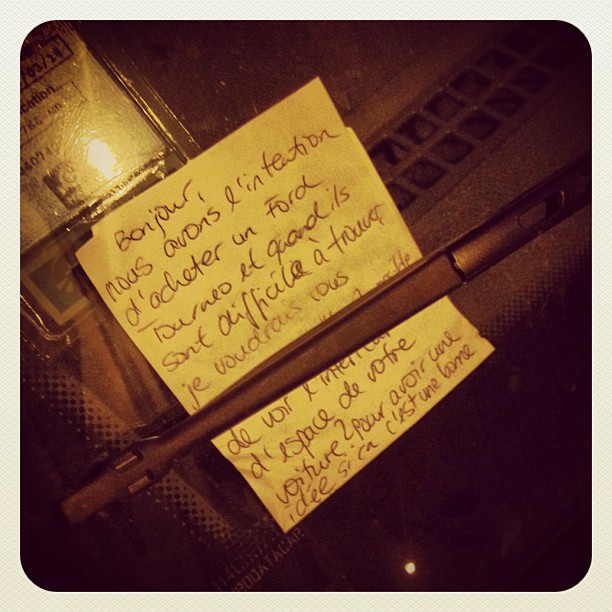 Bonjour,
nous avons l'intention
d'acheter un Ford
Tourneo et quand ils
sont difficile à trouver
je voudrais vous
de voir l'interieur
d'espace de votre
voiture? pour avoir une
idée si ça c'est une bonne